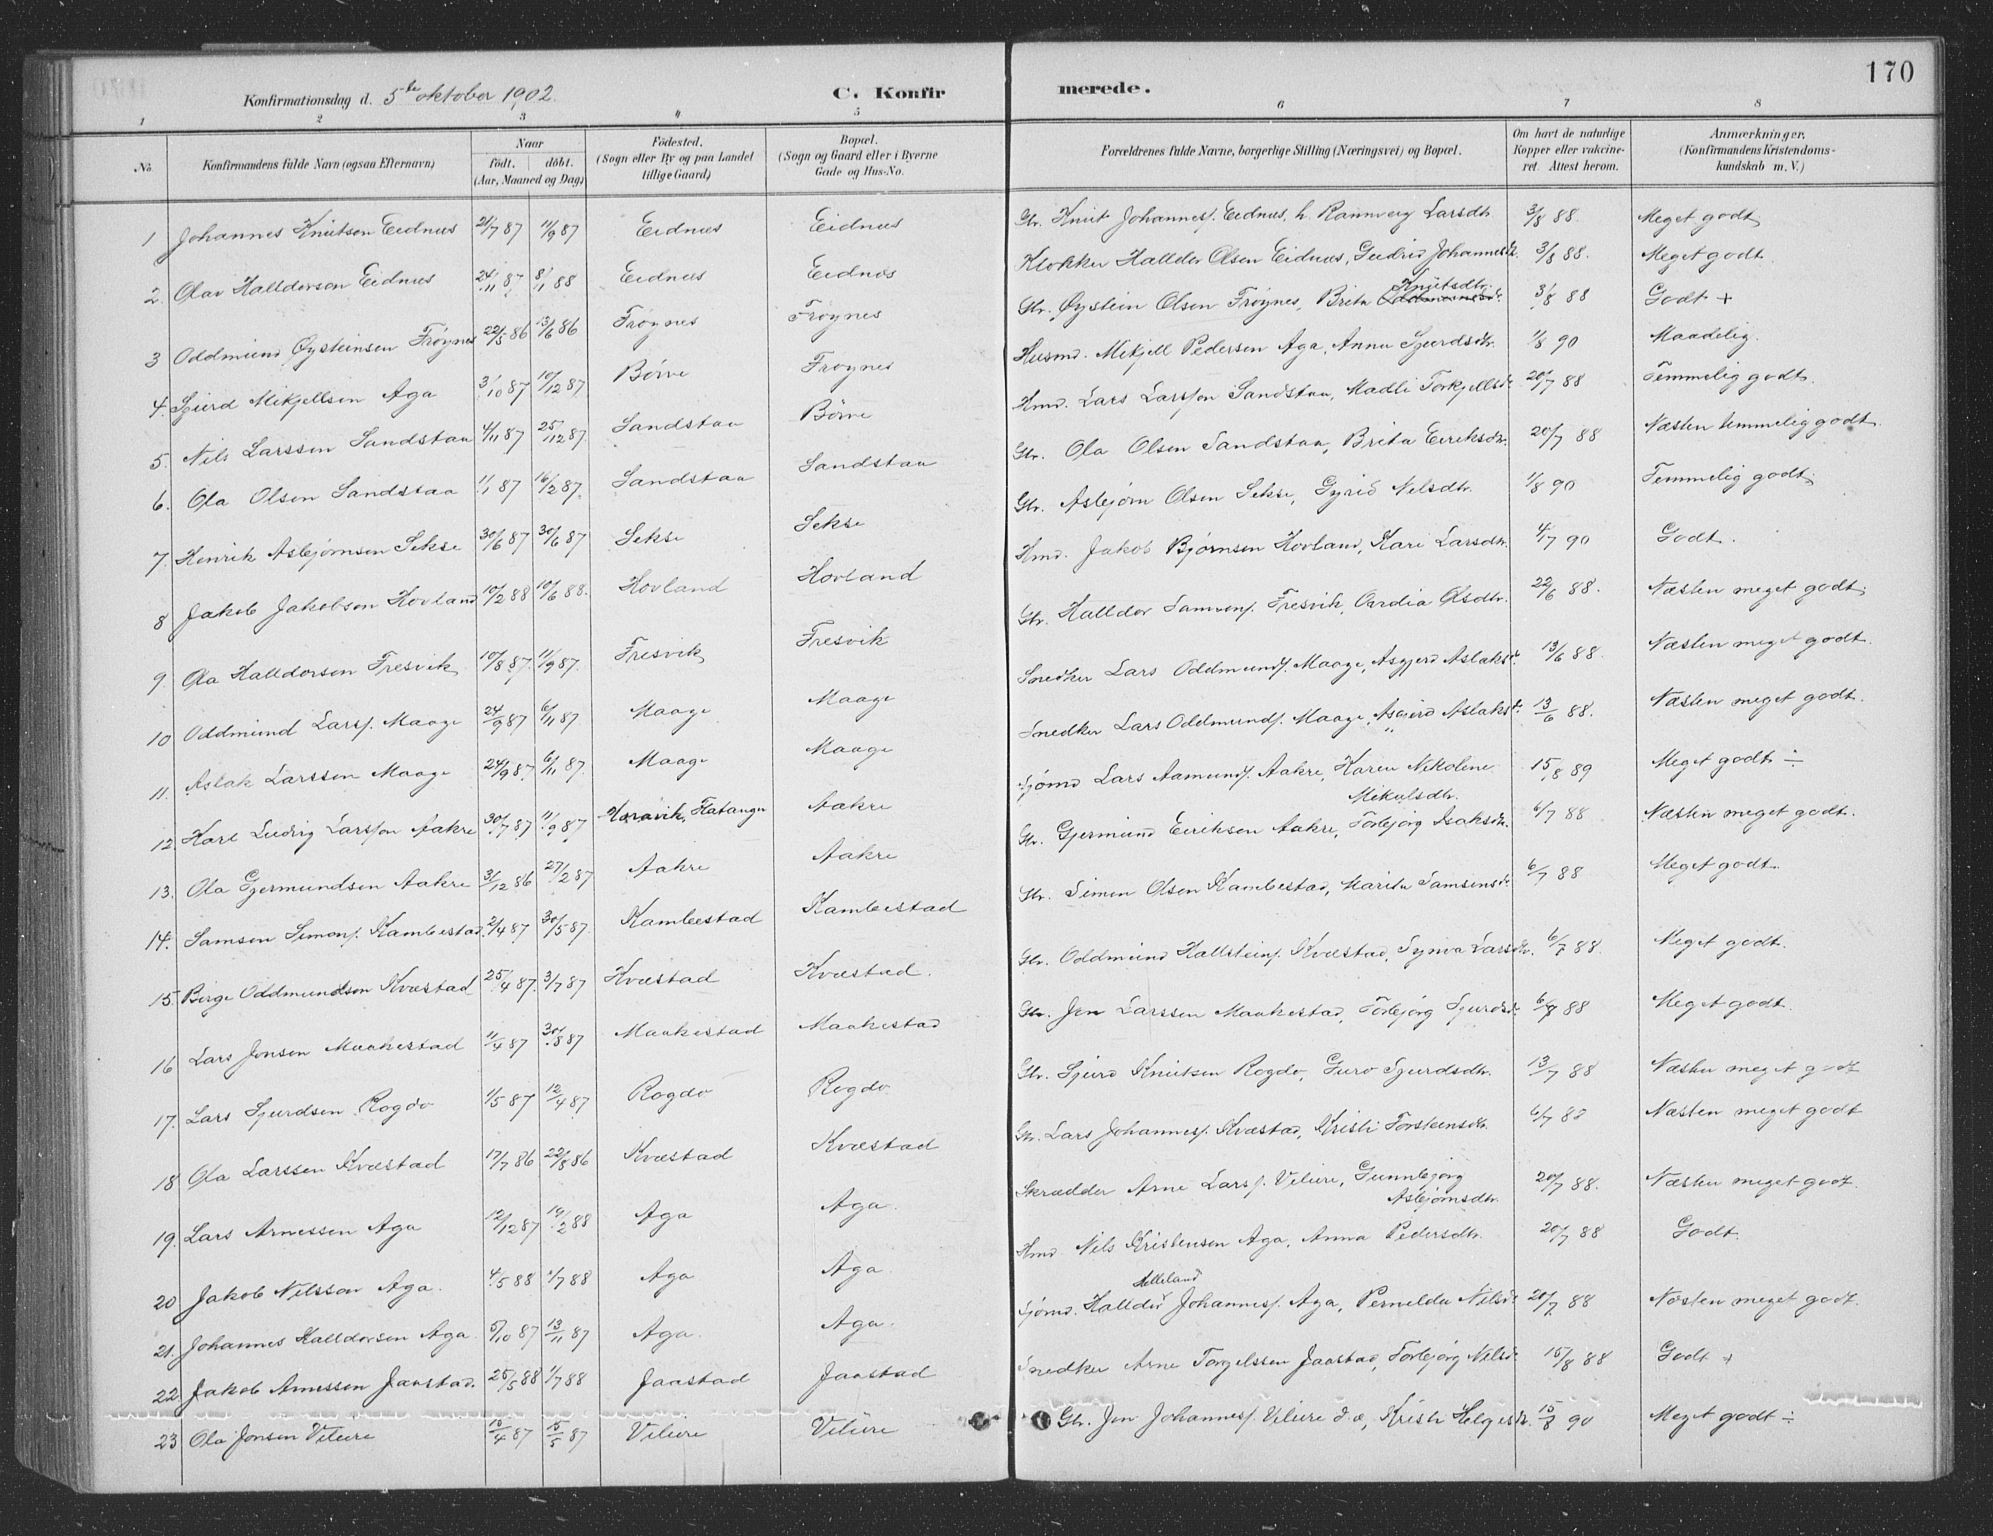 170
Konfirmationsdag d. 5te oktober 1902. C. Konfirmerede.
1 2 3 4 5 6 7 8
No. Konfirmandens fulde Navn (ogsaa Efternavn) Naar födt. döbt. (Aar, Maaned og Dag) Födested. (Sogn eller By og paa Landet tillige Gaard) Bopæl. (Sogn og Gaard eller i Byerne Gade og Hus-No. Forældrenes fulde Navne, borgerlige Stilling (Næringsvei) og Bopæl. Om havt de naturlige Kopper eller vakcineret. Attest herom. Anmærkninger, (Konfirmandens Kristendomskundskab m. V.)
1 Johannes Knutson Eidnes 21/7 87 11/9 87 Eidnes Eidnes Gbr. Knut Johannesf. Eidnes, h. Rannveig Larsdtr. 3/8 88. Meget godt
2. Olav Halldorson Eidnes 24/11 87. 8/1 88 Eidnes Eidnes Klokker Halldor Olsen Eidnes, Gudrid Johannesdtr. 3/8 88. Meget godt
3 Oddmund Øysteinsen Frøynes 22/5 86 13/6 86 Frøynes Frøynes Gbr. Øystein Olsen Frøynes, Brita Knutsdtr. 3/8 88 Godt +
4. Sjurd Mikjellsen Aga 3/10 87 10/12 87 Børve Frøynes Husmd. Mikjell Pedersen Aga, Anna Sjurdsdtr. 1/8 90 Maadelig.
5. Nils Larssen Sandstaa 4/11 87 25/12 87. Sandstaa Børve Hmd. Lars Larsson Sandstaa, Madli Torkjellsdtr. 20/7 88 Temmelig godt.
6. Ola Olsen Sandstaa 1/1 87 16/2 87. Sandstaa Sandstaa Gbr. Ola Olsen Sandstaa, Brita Eiriksdtr. 20/7 88 Næsten temmelig godt.
7. Henrik Asbjørnsen Sekse 30/6 87 30/6 87 Sekse Sekse Gbr. Asbjørn Olsen Sekse, Gyrid Nelsdtr. 1/8 90 Temmelig godt.
8 Jakob Jakobson Hovland 10/2 88 10/6 88. Hovland Hovland Hmd. Jakob Bjørnsen Hovland, Kari Larsdtr. 4/7 90 Godt.
9 Ola Halldorsen Fresvik 10/8 87. 11/9 87. Fresvik Fresvik Gbr. Halldor Samsonf. Fresvik, Ordia Olsdtr. 22/6 88. Næsten meget godt.
10 Oddmund Larsf. Maage 24/9 87 6/11 87. Maage Maage Snedker Lars Oddmundf. Maage, Asgjerd Aslaksdtr. 13/6 88. Næsten meget godt.
11. Aslak Larssen Maage 24/9 87. 6/11 87. Maage Maage Snedker Lars Oddmundf. Maage, Asgjerd Aslaksdtr. 13/6 88. Næsten meget godt.
12. Karl Ludvig Larsson Aakre 30/7 87 11/9 87 Flatanger Aakre Sjømd Lars Aamundf. Aakre, Karen Nikoline Mikalsdtr. 15/8 89 Meget godt ÷
13. Ola Gjermundsen Aakre 31/12 86 27/2 87 Aakre Aakre Gbr. Gjermund Eirikson Aakre, Torbjørg Isaksdtr. 6/7 88 Næsten meget godt.
14. Samson Simonf. Kambestad. 2/4 87 30/5 87. Kambestad Kambestad Gbr. Simon Olsen Kambestad, Marita Samsonsdtr. 6/7 88 Meget godt.
15. Børge Oddmundsen Kvæstad 25/4 87. 3/7 87 Kvæstad Kvæstad. Gbr. Oddmund Hallsteinf. Kvæstad, Synva Larsdtr. 6/7 88. Meget godt.
16 Lars Jonson Maakestad 11/4 87 30/8 87 Maakestad Maakestad Gbr. Jon Larssen Maakestad, Torbjørg Sjurdsdtr. 6/8 88 Meget godt.
17. Lars Sjurdsen Rogdo 1/5 87 12/4 87 Rogdo Rogdo Gbr. Sjurd Knutsen Rogdo, Guro Sjurdsdtr. 13/7 88 Næsten meget godt
18 Ola Larssen Kvæstad 17/7 86 22/8 86 Kvæstad Kvæstad Gbr. Lars Johannesf. Kvæstad, Kristi Torsteinsdtr. 6/7 88 Næsten meget godt
19. Lars Arnessen Aga 12/12 87 19/2 88 Aga Aga. Skrædder Arne Larsf. Velure, Gunnbjørg Asbjørnsdtr. 20/7 88. Næsten meget godt.
20 Jakob Nilsson Aga. 4/5 88 1/7 88 Aga Aga. Hmd Nils Kristensen Aga, Anna Pedersdtr. 20/7 88 Godt.
21. Johannes Halldorsen Aga. 5/10 87 13/11 87 Aga. Aga. Sjømd. Halldor Helleland Johannesf. Aga, Pernilda Nilsdtr. 20/7 88 Næsten meget godt.
22 Jakob Arnessen Jaastad. 25/5 88 1/7 88 Jaastad Jaastad Snedker Arne Torgelssen Jaastad, Torbjørg Nilsdtr. 15/8 88 Godt +
23 Ola Jonsen Velure 10/4 87 15/5 87 Velure Velure Gbr. Jon Johannesf. Velure d.æ, Kristi Helgesdtr. 15/8 90 Meget godt ÷